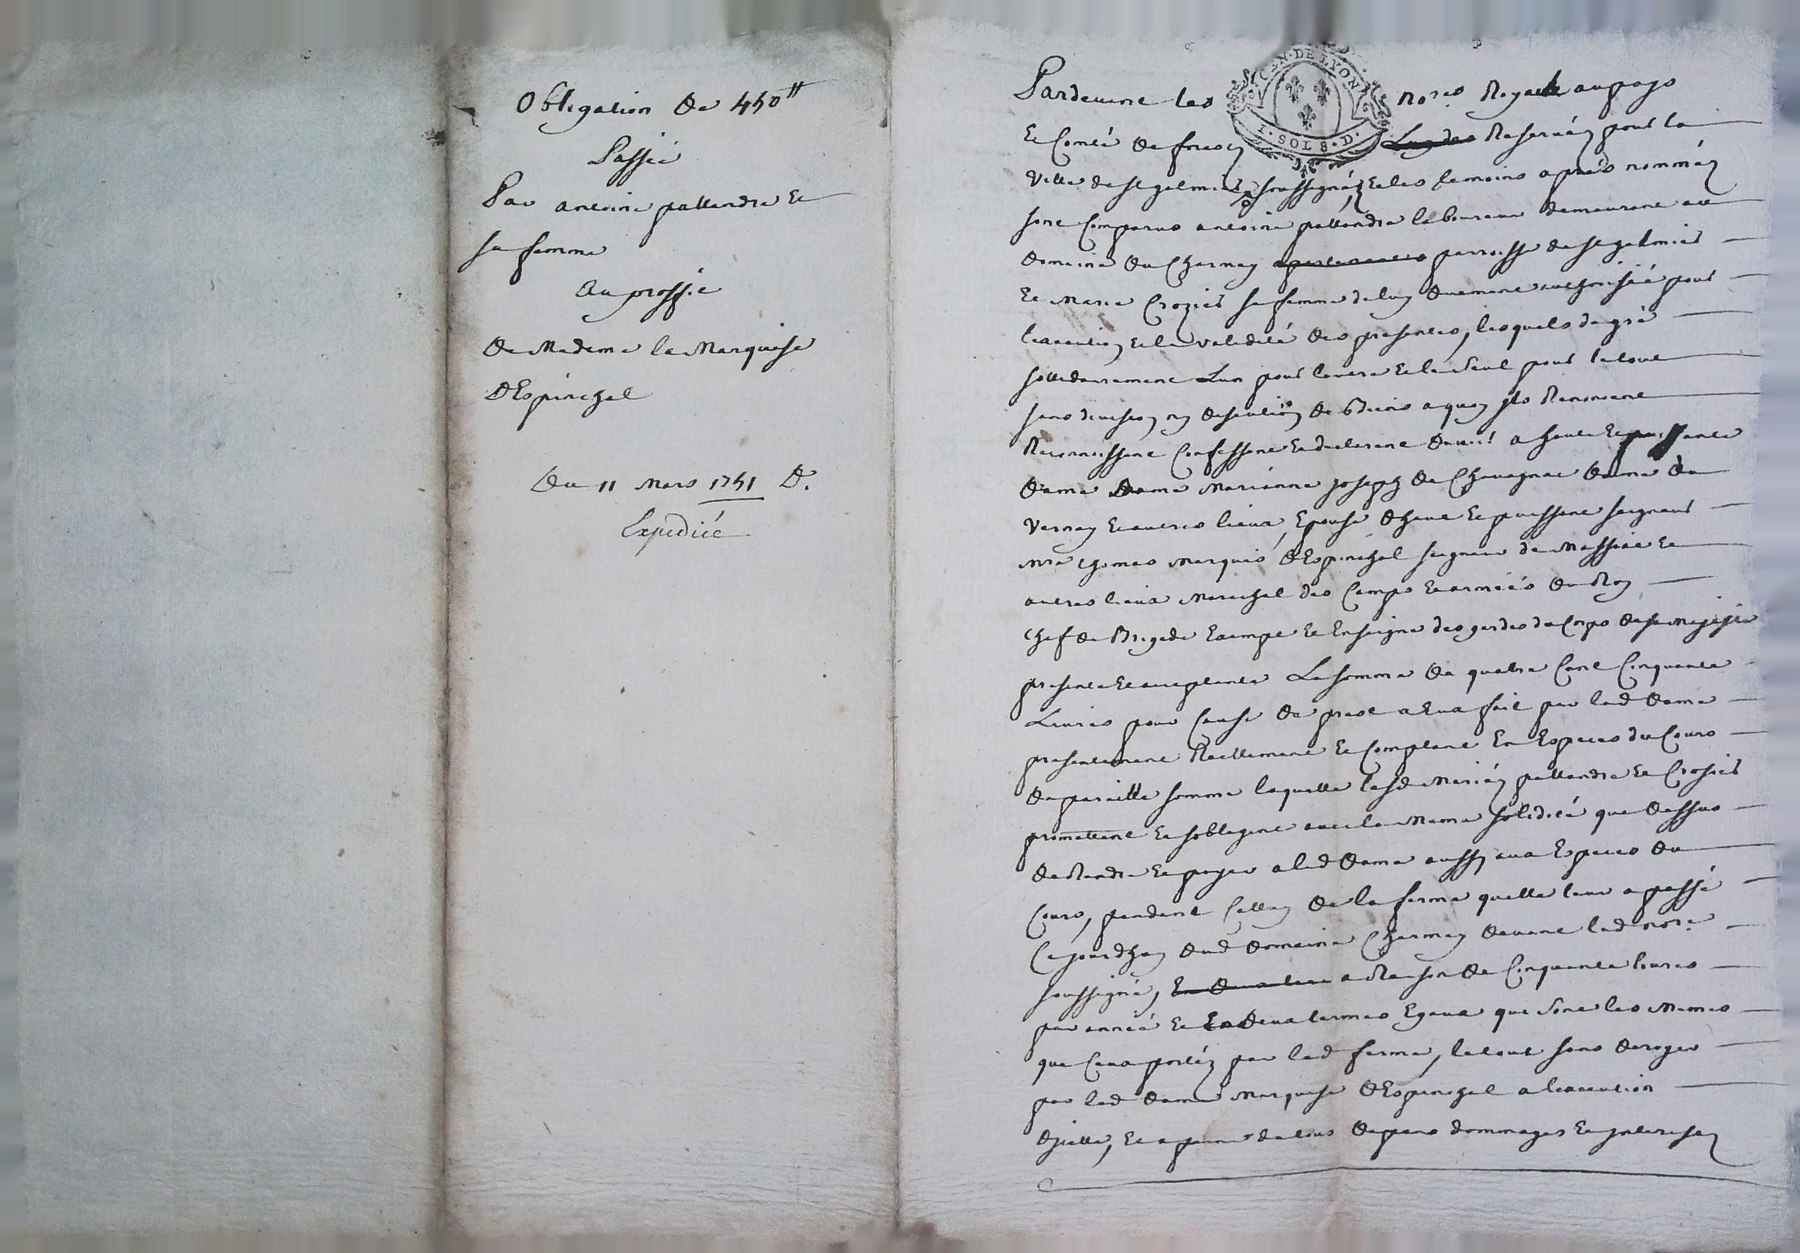 Obligation de 450ᵗᵗ
Passée
Par antoine pallandre et
sa femme
Au proffit
de Madame la Marquise
D'Espinchal
Du 11 Mars 1751 D.
Expediée
GEN · DE LYON
I · SOL 8 · D ·
Pardevant les no.res Royaux au pays
et Comté de forest Reservéz pour la
ville de st galmier soussignéz et les temoins apres nomméz
sont Comparus antoine pallandre laboureur demeurant au
domaine du Charney parroisse de st galmier
et Marie Crozier sa femme de luy duement authorisée pour
lexecution et la validité des presentes, lesquels de gré
sollidairement Lun pour lautre et le seul pour le tout
sans division ny discution de biens a quoy ils Renoncent
Reconnoissent Confessent et declarent devoir a haute et puissante
dame dame Marianne Joseph de Chavagnac dame du
Vernay et autres lieux, Epouse d'haut et puissant seigneur
mre thomas Marquis d'Espinchal seigneur de Massiac et
autres lieux Marechal des Camps et armées du Roy
Chef de Brigade Exempt et Enseigne des gardes du Corps de sa Majesté
presente et acceptante La somme de quatre Cent Cinquante
Livres pour Cause de prest a eux fait par lad dame
presentement Reellement et Comptant En Especes du Cours
de pareille somme laquelle lesd Mariéz pallandre et Crosier
promettent et sobligent avec la meme solidité que dessus
de Rendre et payer a lad dame aussy aux Especes du
Cours, pendant de la ferme quelle leur a passé
Cejourdhuy dud domaine Charmey devant led nore
soussigné, a Raison de Cinquante livres
par année et En deux termes Egaux que sont les memes
que Ceux portéz par lad ferme, le tout sans deroger
par lad dame Marquise d'Espinchal a lexecution
dicelle, et a peine de tous depens dommages et interestz